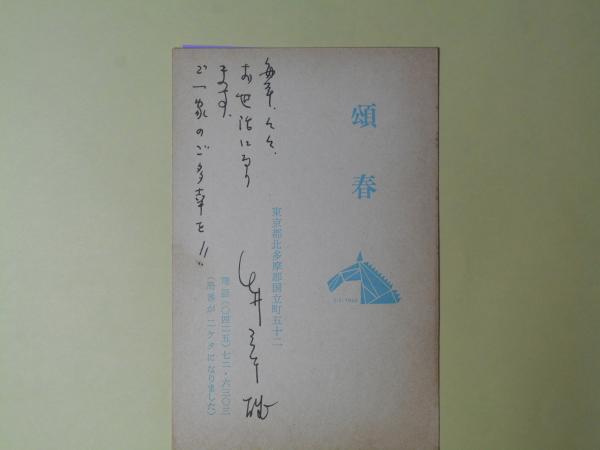 頌春
1・1・1966
東京都北多摩郡国立町五十二
電話(〇四二五)七二・六三〇三
(局番が二ケタになりました)
毎年、々々、
お世話になり
ます。
ご一家のご多幸を!!